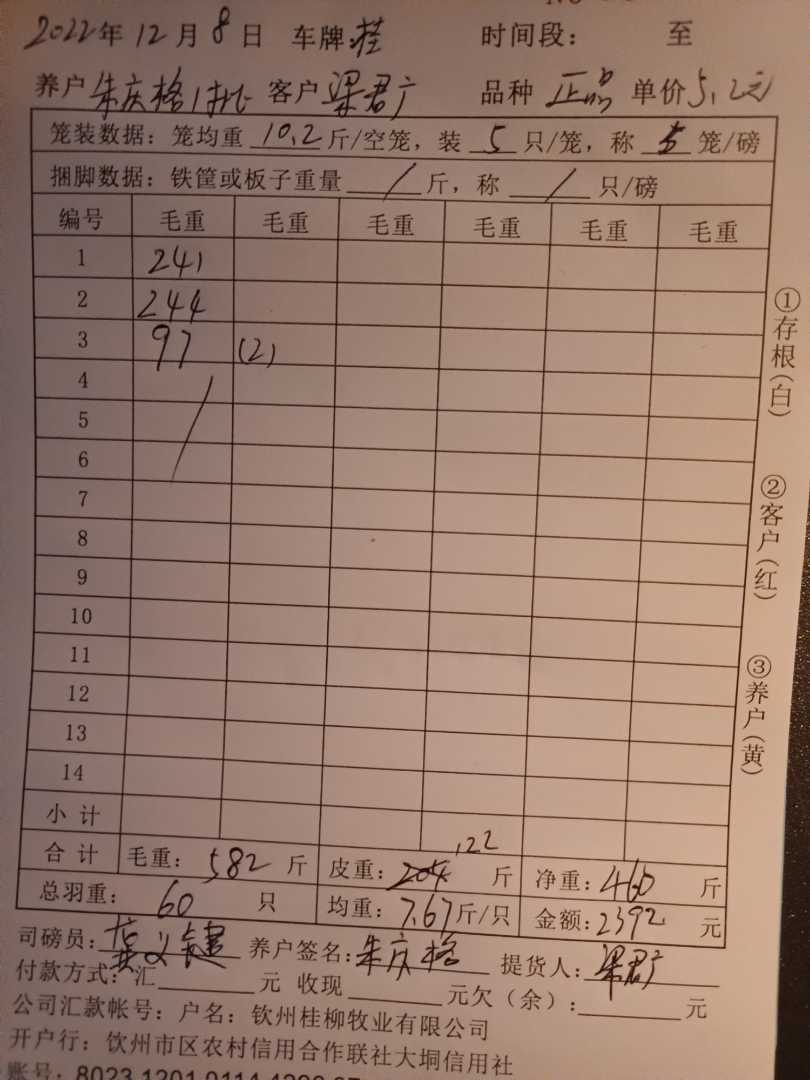 2022年12月8日 车牌:桂 时间段: 至
养户 朱庆格1批 客户 梁君广 品种 正品 单价5.2元
笼装数据: 笼均重 10.2 斤/空笼, 装 5 只/笼, 称 5 笼/磅
捆脚数据: 铁筐或板子重量 / 斤, 称 / 只/磅
编号 毛重 毛重 毛重 毛重 毛重 毛重
1 241
2 244
3 97 (2)
4
5
6
7
8
9
10
11
12
13
14
小计
合计 毛重: 582 斤 皮重: 204 122 斤 净重: 460 斤
总羽重: 60 只 均重: 7.67斤/只 金额: 2392 元
司磅员: 养户签名: 朱庆格 提货人: 梁君广
付款方式: 汇 元 收现 元欠(余): 元
公司汇款帐号: 户名: 钦州桂柳牧业有限公司
开户行: 钦州市区农村信用合作联社大垌信用社
账号: 8023 1201 0114
①存根(白)
②客户(红)
③养户(黄)